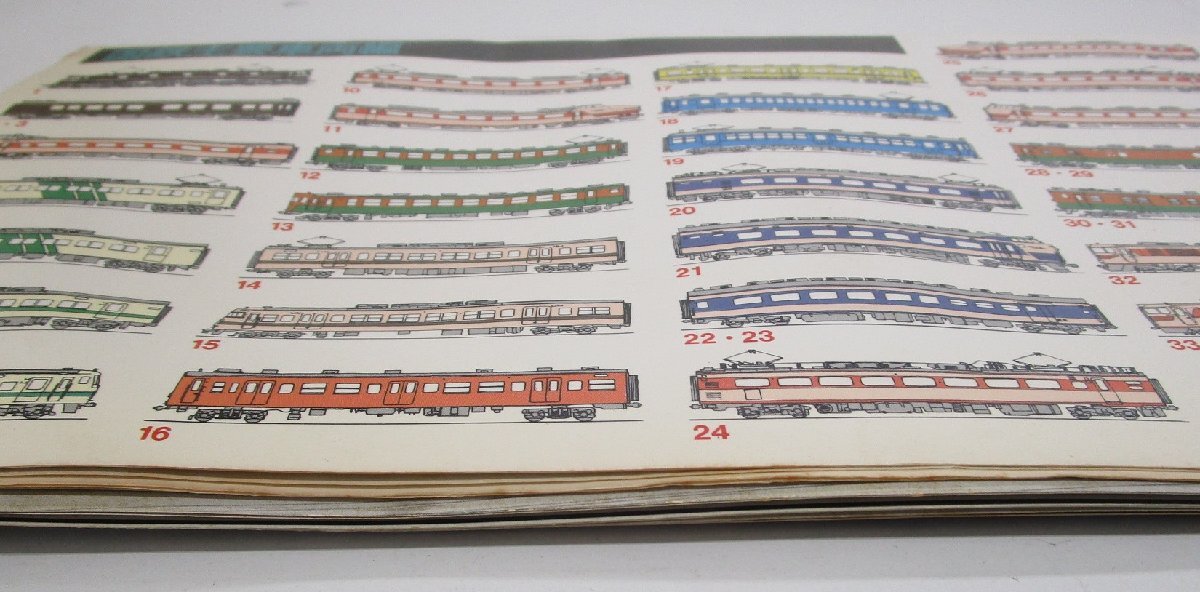 1
・3
10
11
12
13
14
15
16
17
18
19
20
21
22・23
24
25
27
28・29
30・31
32
33